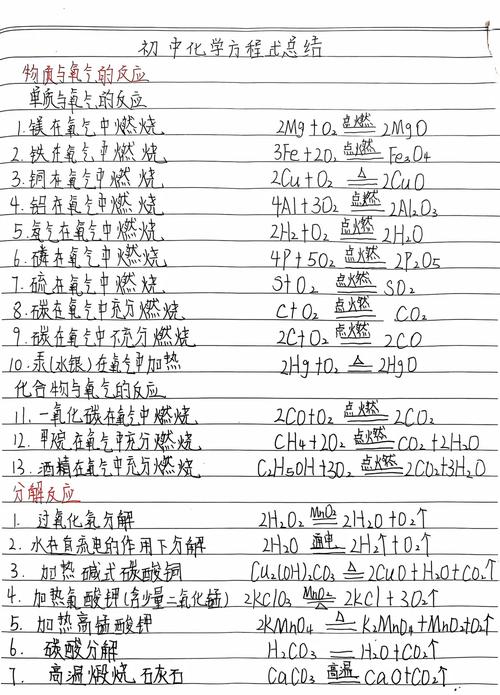 初中化学方程式总结
物质与氧气的反应
单质与氧气的反应
1.镁在氧气中燃烧 2Mg+O₂ 点燃 2MgO
2.铁在氧气中燃烧 3Fe+2O₂ 点燃 Fe₃O₄
3.铜在氧气中燃烧 2Cu+O₂ △ 2CuO
4.铝在氧气中燃烧 4Al+3O₂ 点燃 2Al₂O₃
5.氢气在氧气中燃烧 2H₂+O₂ 点燃 2H₂O
6.磷在氧气中燃烧 4P+5O₂ 点燃 2P₂O₅
7.硫在氧气中燃烧 S+O₂ 点燃 SO₂
8.碳在氧气中充分燃烧 C+O₂ 点燃 CO₂
9.碳在氧气中不充分燃烧 2C+O₂ 点燃 2CO
10.汞(水银)在氧气中加热 2Hg+O₂ △ 2HgO
化合物与氧气的反应
11.一氧化碳在氧气中燃烧 2CO+O₂ 点燃 2CO₂
12.甲烷在氧气中充分燃烧 CH4+2O₂ 点燃 CO₂+2H₂O
13.酒精在氧气中充分燃烧 C₂H5OH+3O₂ 点燃 2CO₂+3H₂O
分解反应
1. 过氧化氢分解 2H₂O₂ MnO₂ 2H₂O+O₂↑
2.水在直流电的作用下分解 2H₂O 通电 2H₂↑+O₂↑
3. 加热碱式碳酸铜 Cu₂(OH)₂CO₃ △ 2CuO+H₂O+CO₂↑
4.加热氯酸钾(含少量二氧化锰) 2KClO₃ MnO₂ △ 2KCl+3O₂↑
5. 加热高锰酸钾 2KMnO₄ △ K₂MnO₄+MnO₂+O₂↑
6. 碳酸分解 H₂CO₃ H₂O+CO₂↑
7. 高温煅烧石灰石 CaCO₃ 高温 CaO+CO₂↑